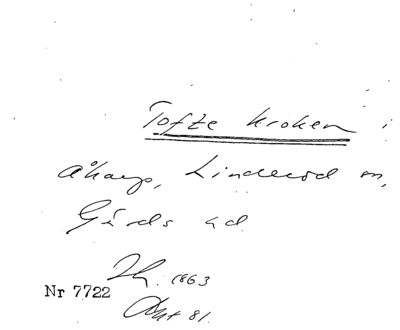 Tofte kroken i
Åkarp, Linderöd sn,
Gärds hd
1863
Nr 7722
Okt 81.